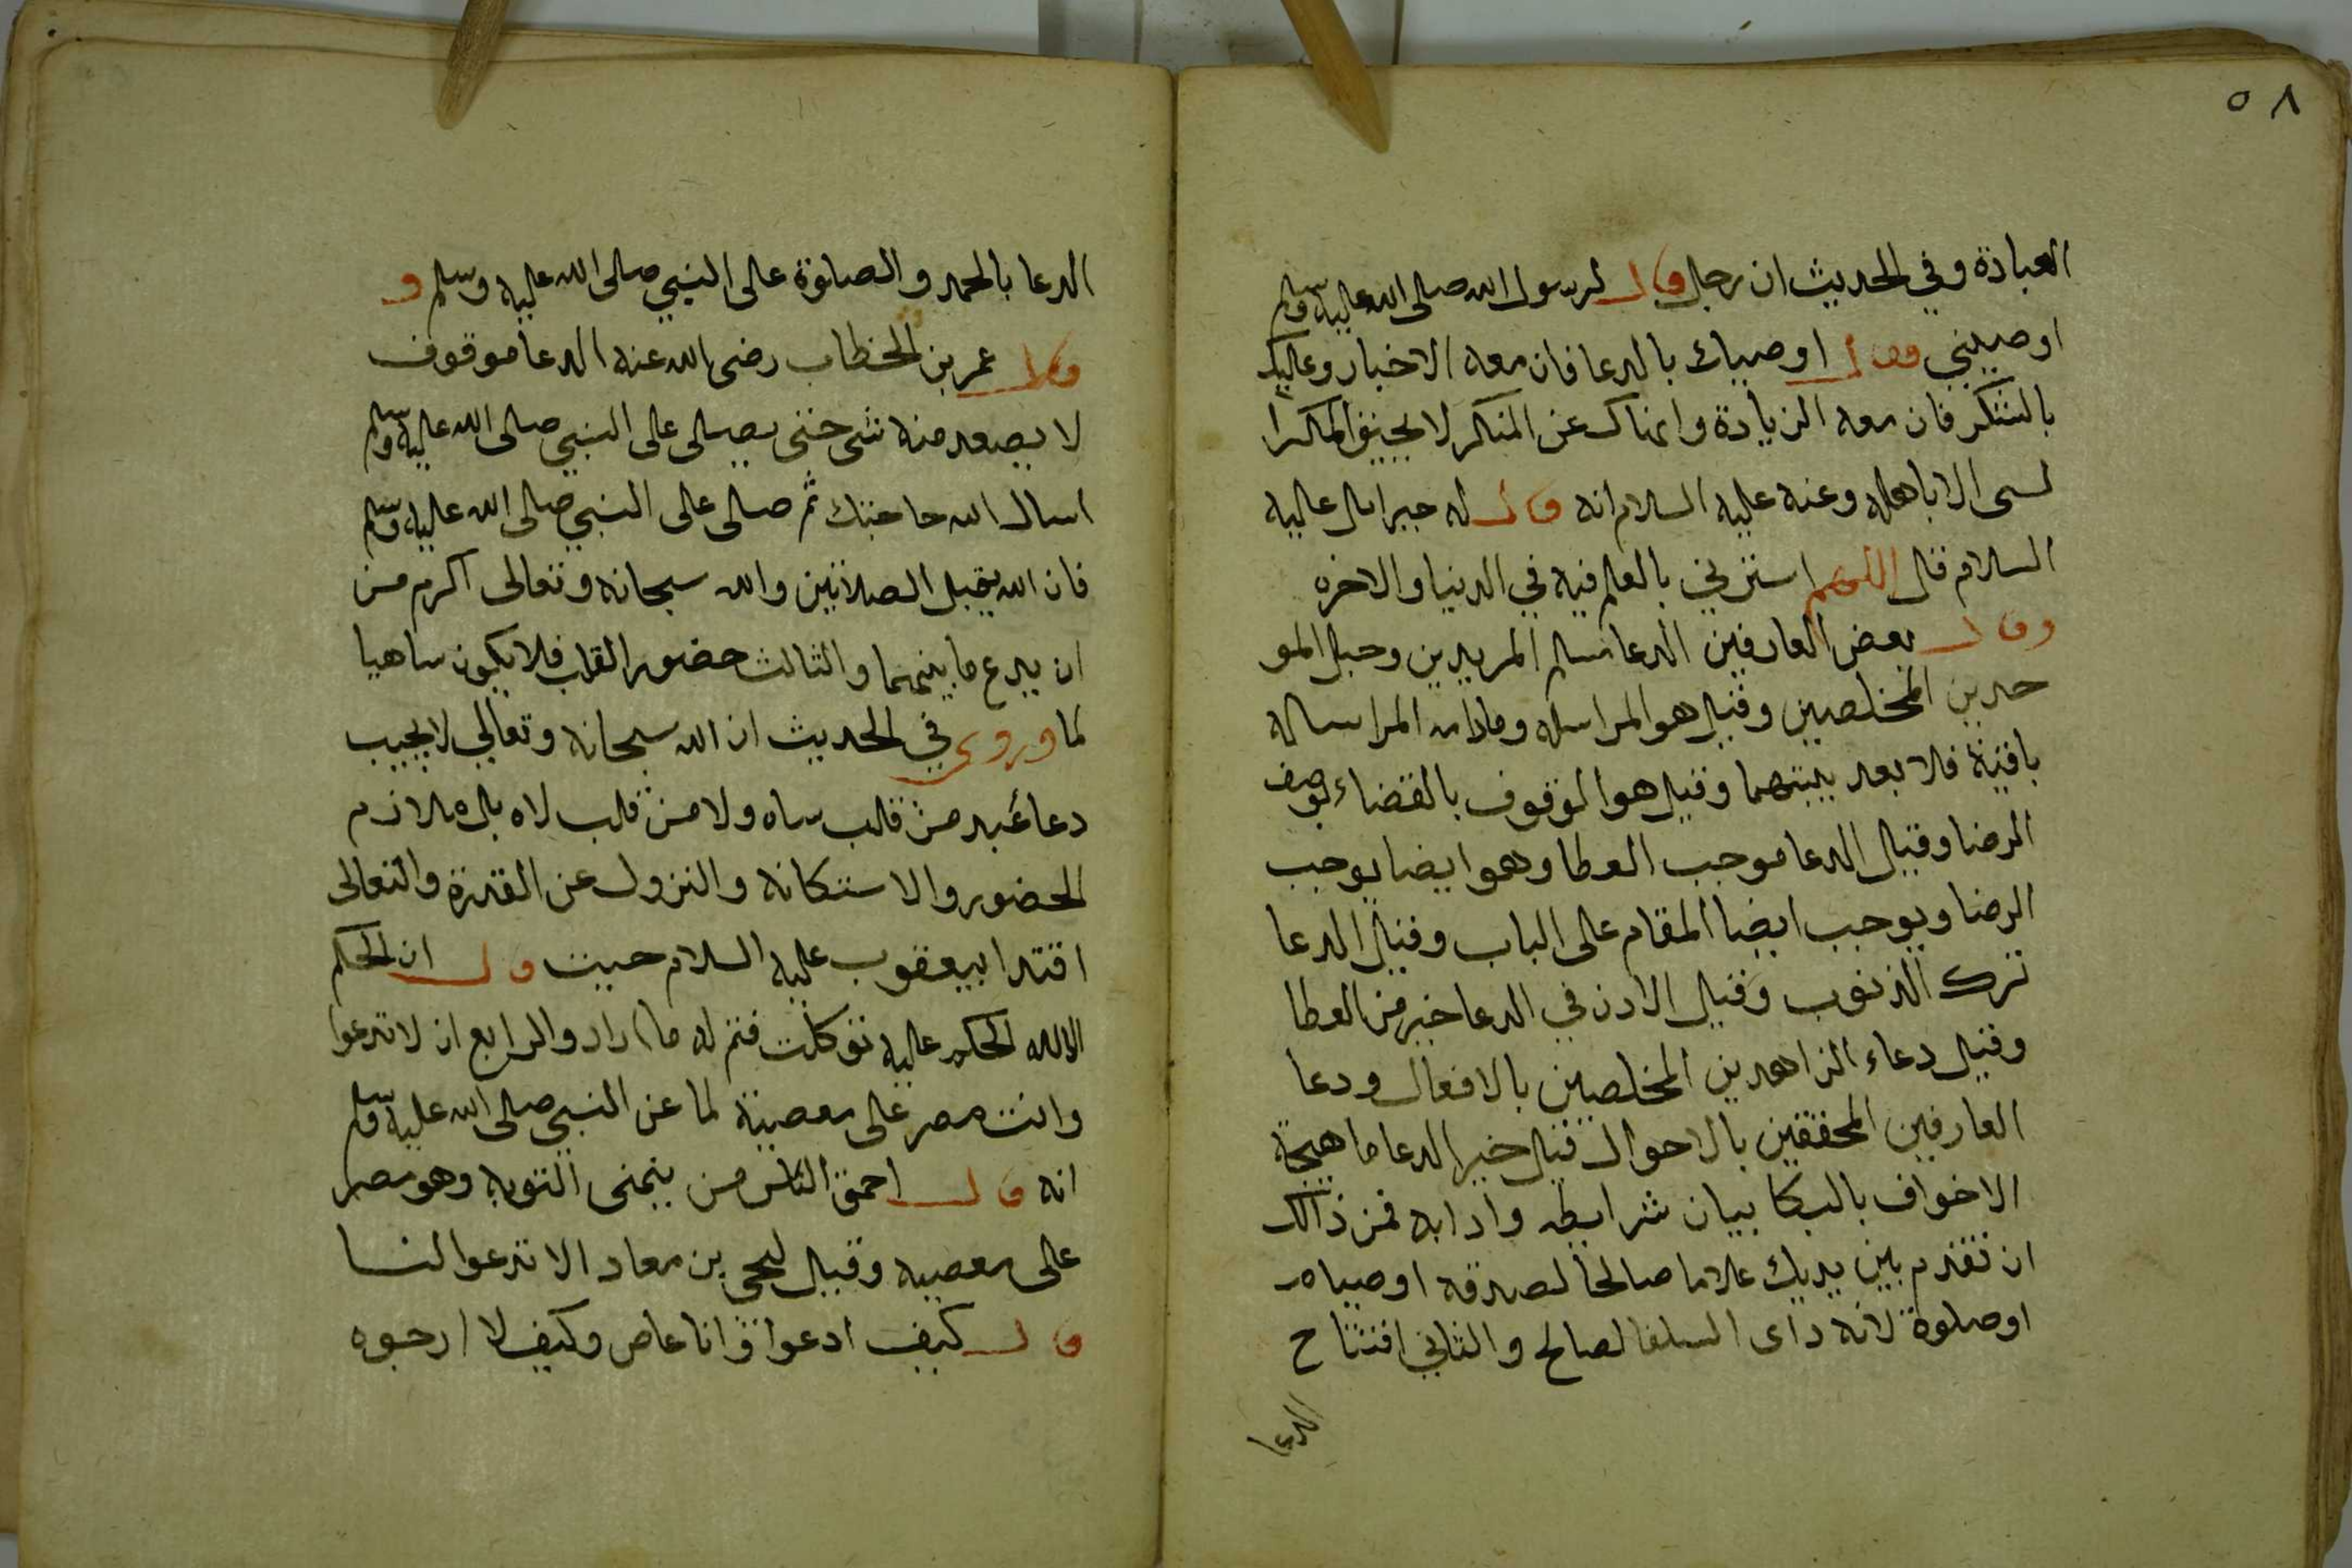 ٥٨
العبادة وفي الحديث ان رجل قال لرسول الله صلى الله عليه وسلم
اوصيني فقال اوصيك بالدعا فان معه الاخبار وعليك
بالشكر فان معه الزيادة وانهاك عن المنكر لا يحيق المكر ا
لسى الا باهله وعنه عليه السلام انه قال له جبرايل عليه
السلام قال اللهم استرني بالعلم فيه في الدنيا والاخره
وقال بعض العارفين الدعا سلم المريدين وحبل المو
حدين المخلصين وقيل هو المراسله ومادامه المراساله
باقية فلا بعد بينهما وقيل هو الموقوف بالقضاء لوصف
الرضا وقيل الدعا موجب العطا وهو ايضا يوجب
الرضا ويوجب ايضا المقام على الباب وقيل الدعا
ترك الذنوب وقيل الاذن في الدعا خير من العطا
وقيل دعاء الزاهدين المخلصين بالافعال ودعا
العارفين المحققين بالاحوال قيل خير الدعا ما هيجة
الاخواف بالبكا بيان شرايطه وادابه فمن ذالك
ان تقدم بين يديك علاما صالحا لصدقه او صيام
او صلوة لانه داى السلفا لصالح والثاني افتتاح
الدعا
الدعا بالحمد والصلوة على النبي صلى الله عليه وسلم و
قال عمر بن الخطاب رضى الله عنه الدعا موقوف
لا يصعد منه شى حتى يصلى على النبي صلى الله عليه وسلم
اسال الله حاجتك ثم صلى على النبي صلى الله عليه وسلم
فان الله يقبل الصلاتين والله سبحانه وتعالى اكرم من
ان يدع ما بينهما والثالث حضور القلب فلا يكون ساهيا
لما وروى في الحديث ان الله سبحانه وتعالي لا يجيب
دعا عبد من قلب ساه ولا من قلب لاه بل ملازم
الحضور والاستكانه والنزول عن القدرة والتعالى
اقتدا بيعقوب عليه السلام حيث قال ان الحكم
الالله الحكم عليه توكلت فتم له ما اراد والرابع ان لا تدعوا
وانت مصر على معصية لما عن النبي صلى الله عليه وسلم
انه قال احمق الناس من يتمنى التوبه وهو مصر
على معصيه وقيل ليحي بن معاد الا تدعوا لنا
قال كيف ادعوا وانا عاص وكيف لا ارجوه